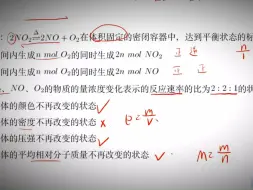 : 2NO₂ ⇌ 2NO + O₂在体积固定的密闭容器中，达到平衡状态的标
间内生成 n mol O₂的同时生成 2n mol NO₂ 正 逆
间内生成 n mol O₂的同时生成 2n mol NO 正 正
NO、O₂的物质的量浓度变化表示的反应速率的比为 2 : 2 : 1的状
体的颜色不再改变的状态 ✓
体的密度不再改变的状态 × ρ = m/V
体的压强不再改变的状态 ✓
体的平均相对分子质量不再改变的状态 ✓ M = m/n